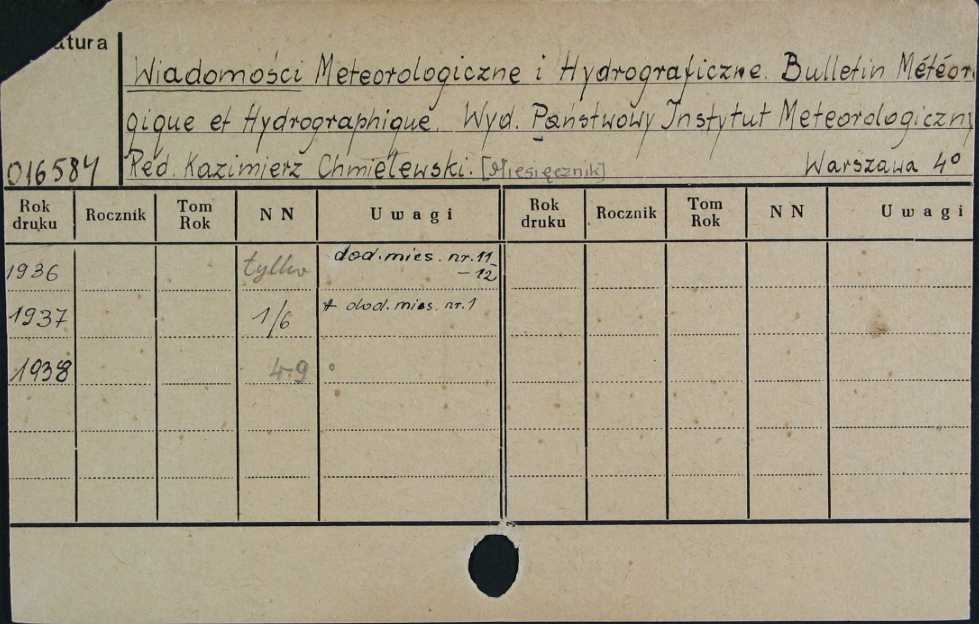 atura
Wiadomości Meteorologiczne i Hydrograficzne. Bulletin Météor
gique et Hydrographique. Wyd. Państwowy Instytut Meteorologiczny
016587 Red. Kazimierz Chmielewski. [Miesięcznik] Warszawa 4º
Rok druku Rocznik Tom Rok NN Uwagi Rok druku Rocznik Tom Rok NN Uwagi
1936 tylko dod. mies. nr. 11
-12
1937 1/6 + dod. mies. nr. 1
1938 4-9